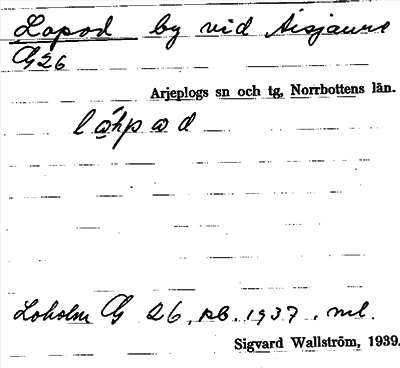 Lapod by vid Aisjaure
G26
Arjeplogs sn och tg, Norrbottens län.
låhpad
Loholm G 26, rb. 1937, ml.
Sigvard Wallström, 1939.